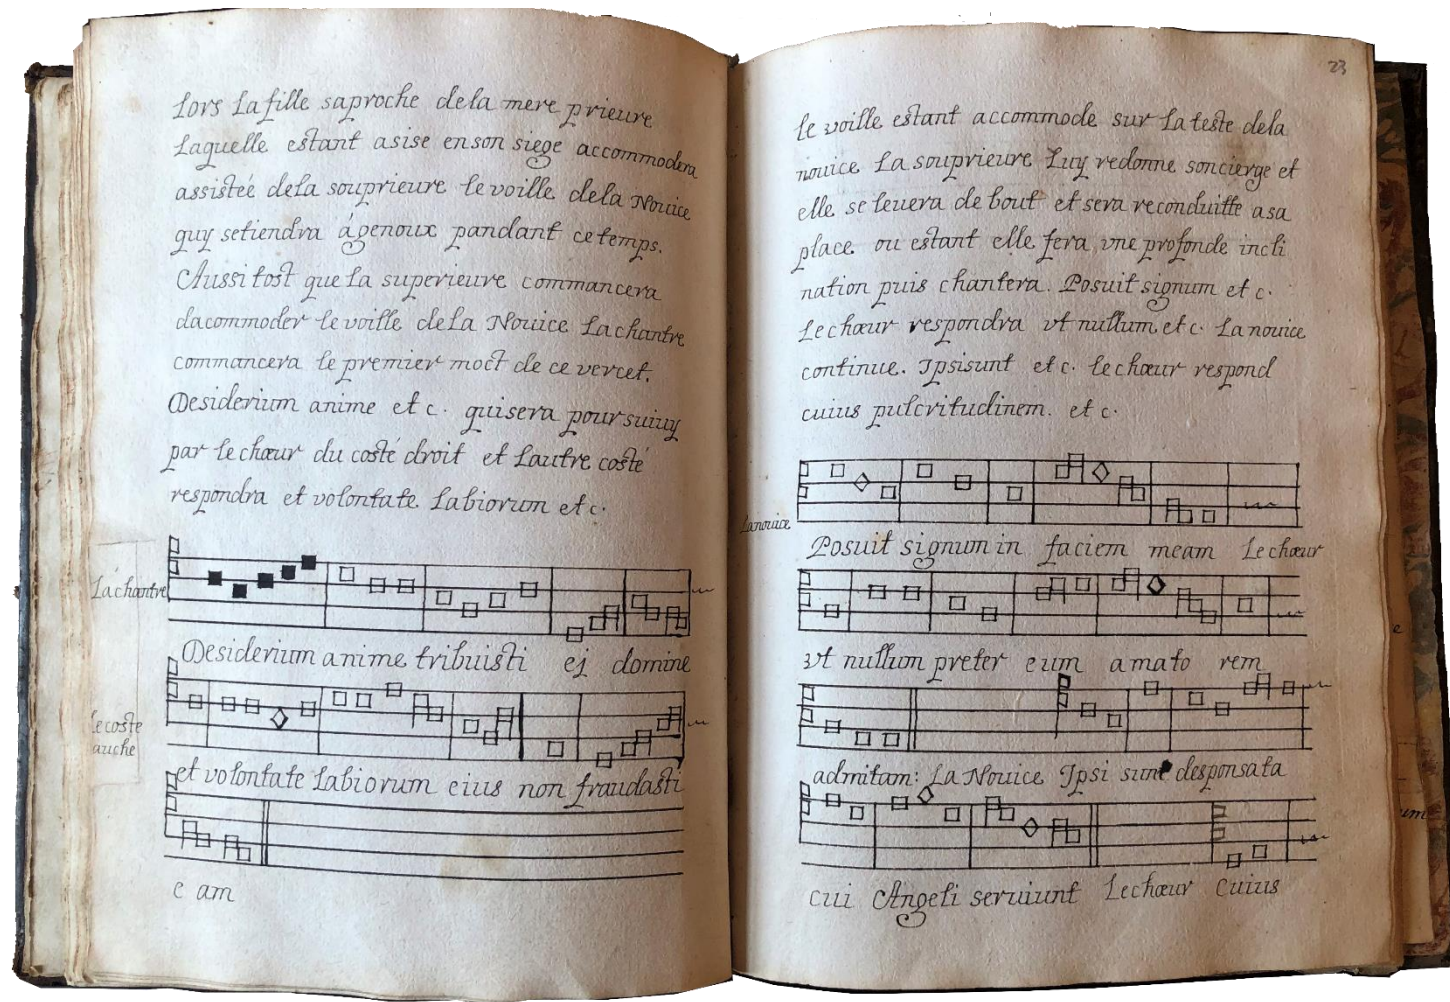 Lors La fille saproche dela mere prieure
Laquelle estant asise enson siege accommodera
assisteé dela souprieure le voille dela Novice
quy setiendra ágenoux pandant cetemps.
Aussi tost que la superieure commancera
dacommoder le voille dela Novice La chantre
commancera le premier moct de ce vercet.
Desiderium anime et c. quisera poursuiuy
par le chœur du costé droit et Lautre costé
respondra et volontate Labiorum et c.
Lá chantre
Desiderium anime tribuisti ej domine
le coste
auche
et volontate Labiorum eius non fraudasti
e am
23
le voille estant accommode sur La teste dela
nouice La souprieure Luy redonne soncierge et
elle se leuera de bout et sera reconduitte a sa
place ou estant elle fera vne profonde incli
nation puis chantera. Posuit signum et c.
Le chœur respondra vt nullum et c. La nouice
continue. Ipsisunt et c. le chœur respond
cuius pulcritudinem. et c.
La nouice
Posuit signum in faciem meam Le chœur
vt nullum preter eum amato rem
admitam: La Nouice Ipsi sunt desponsata
cui Angeli seruiunt Le chœur Cuius